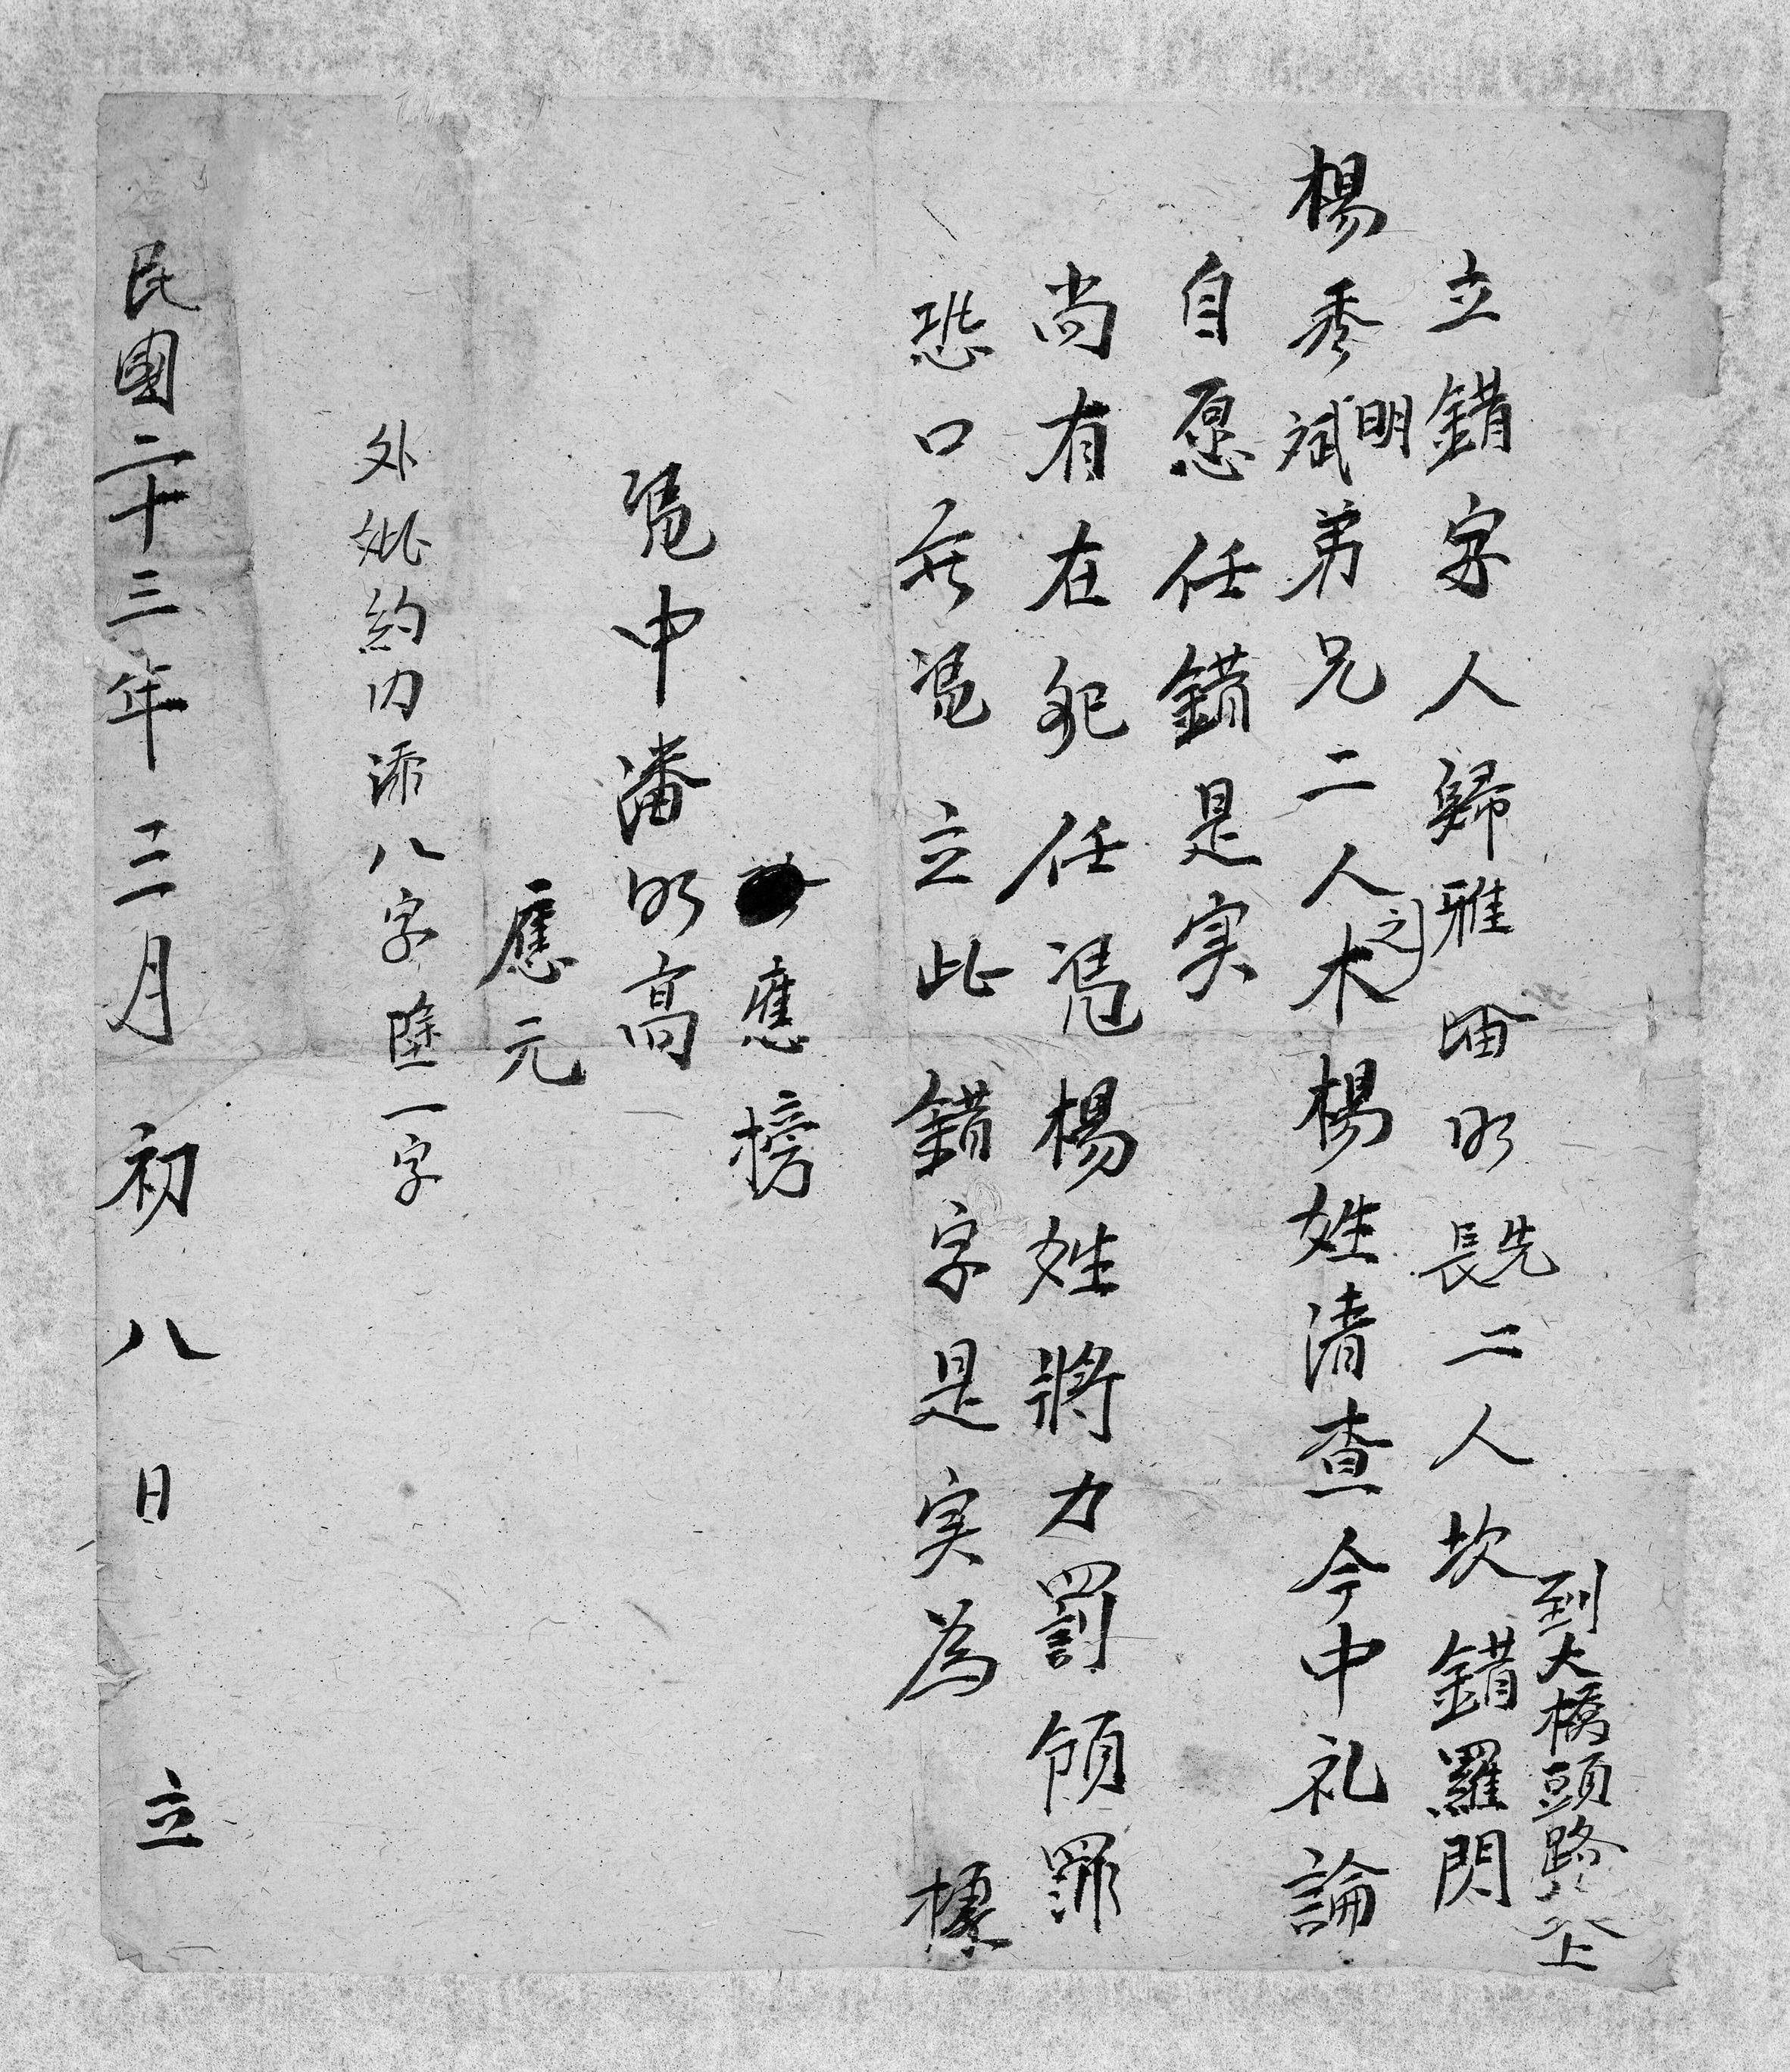 立錯字人歸雅畓明長先二人坎錯羅閃
到大橋頭路坎上
楊秀斌明弟兄二人之木楊姓清查今中礼論
自愿任錯是実
尚有在犯任凴楊姓將力罰領罪
恐口無凴立此錯字是実為據
應榜
凴中潘明高
應元
外批約内添八字塗一字
民國二十三年三月初八日立